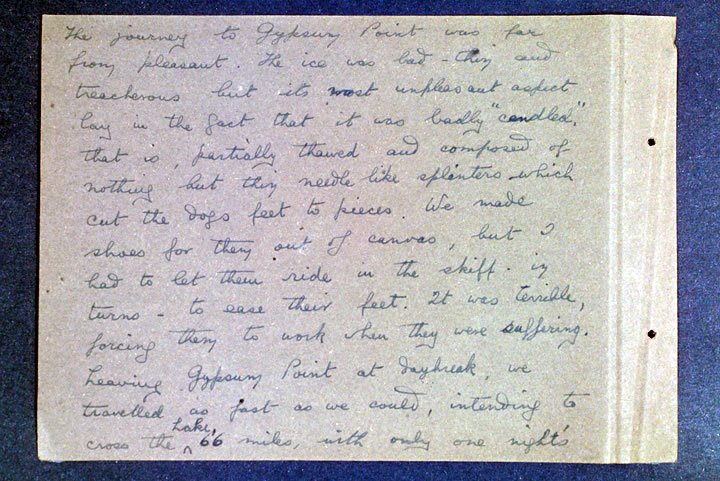 The journey to Gypsum Point was far
from pleasant. The ice was bad - thin and
treacherous but its most unpleasant aspect
lay in the fact that it was badly "candled",
that is, partially thawed and composed of
nothing but thin needle like splinters which
cut the dogs feet to pieces. We made
shoes for them out of canvas, but I
had to let them ride in the skiff - in
turns - to ease their feet. It was terrible,
forcing them to work when they were suffering.
Leaving Gypsum Point at daybreak, we
travelled as fast as we could, intending to
cross the Lake, 66 miles, with only one night's